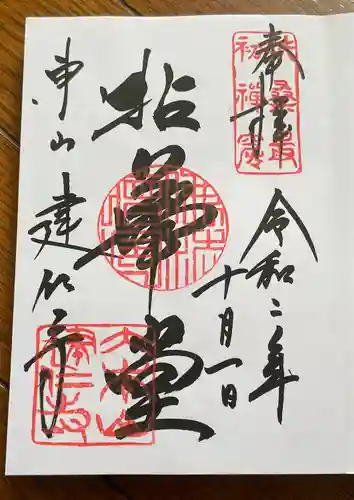 奉拝
扶桑最
初禅窟
令和二年
十月一日
拈華堂
東山 建仁寺